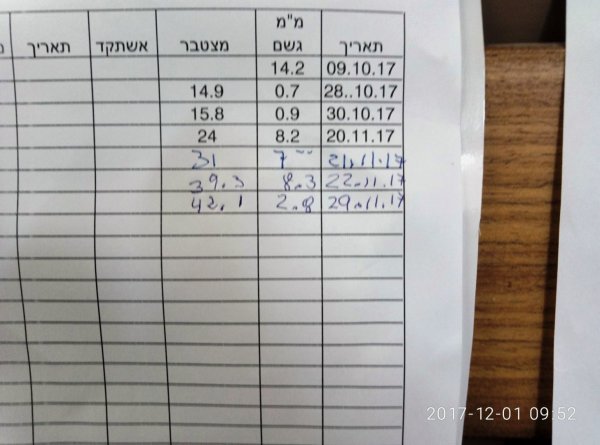 מ"מ
תאריך גשם מצטבר אשתקד תאריך
09.10.17 14.2
28..10.17 0.7 14.9
30.10.17 0.9 15.8
20.11.17 8.2 24
21.11.17 7 31
22.11.17 8.3 39.3
29.11.17 2.8 42.1
2017-12-01 09:52